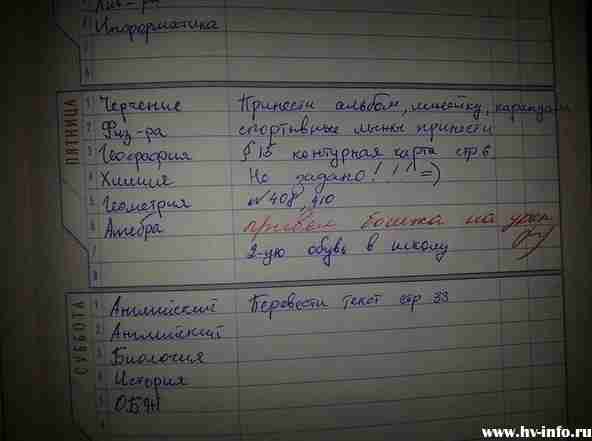 4 Информатика
ПЯТНИЦА
1 Черчение Принести альбом, линейку, карандаш
2 Физ-ра спортивные лыжи принести
3 География § 15 контурная карта стр 6
4 Химия Не задано! ! ! =)
5 Геометрия № 408, 410
6 Алгебра привёл бомжа на урок
7 2-ую обувь в школу
8
СУББОТА
1 Английский Перевести текст стр 33
2 Английский
3 Биология
4 История
5 ОБЖ
6
www.hv-info.ru